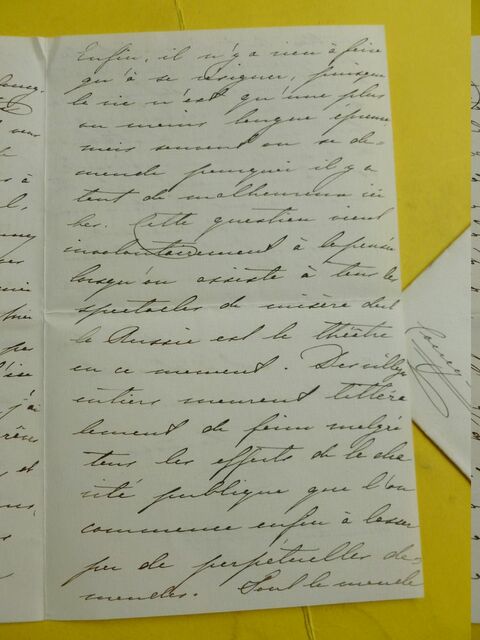 Enfin, il n'y a rien à faire
qu'à se résigner, puisque
la vie n'est qu'une plus
ou moins longue épreuve
mais souvent on se de-
mande pourquoi il y a
tant de malheureux ici
bas. Cette question vient
involontairement à la pensée
lorsqu'on assiste à tous les
spectacles de misère dont
la Russie est le théâtre
en ce moment. Des villages
entiers meurent littéra
lement de faim malgré
tous les efforts de la cha
rité publique que l'on
commence enfin à lasser
par de perpétuelles de-
mandes. Tout le monde